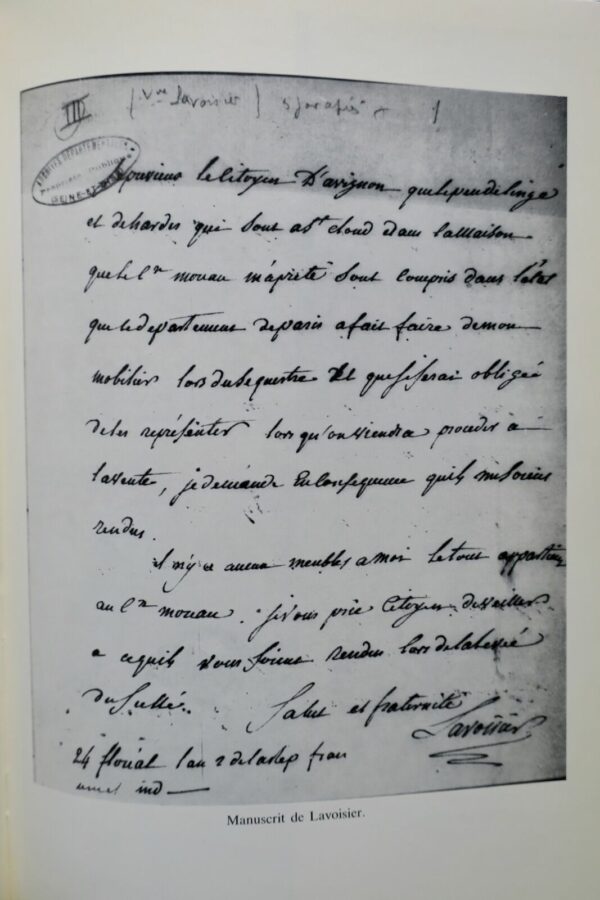 III (Vve Lavoisier)
ARCHIVES DÉPARTEMENTALES
Propriété Publique
SEINE-ET-
le Citoyen D'avignon que le peu de linge
et de hardes qui sont a St Cloud dans la Maison
que le Cen mouau m'a preté sont Compris dans l'etat
que le departement de paris a fait faire de mon
mobilier lors du sequestre Et que je serai obligée
de les représenter lorsqu'on viendra proceder a
la vente, je demande En Consequence quils me soient
rendus.
il n'y a aucun meubles a moi le tout appartien
au Cen mouau. je vous prie Citoyen de veiller
a ce quils vous soient rendus lors de la levée
du Scellé. Salut et fraternité
Lavoisier
24 floréal l'an 2 de la rep fran
une et ind
Manuscrit de Lavoisier.